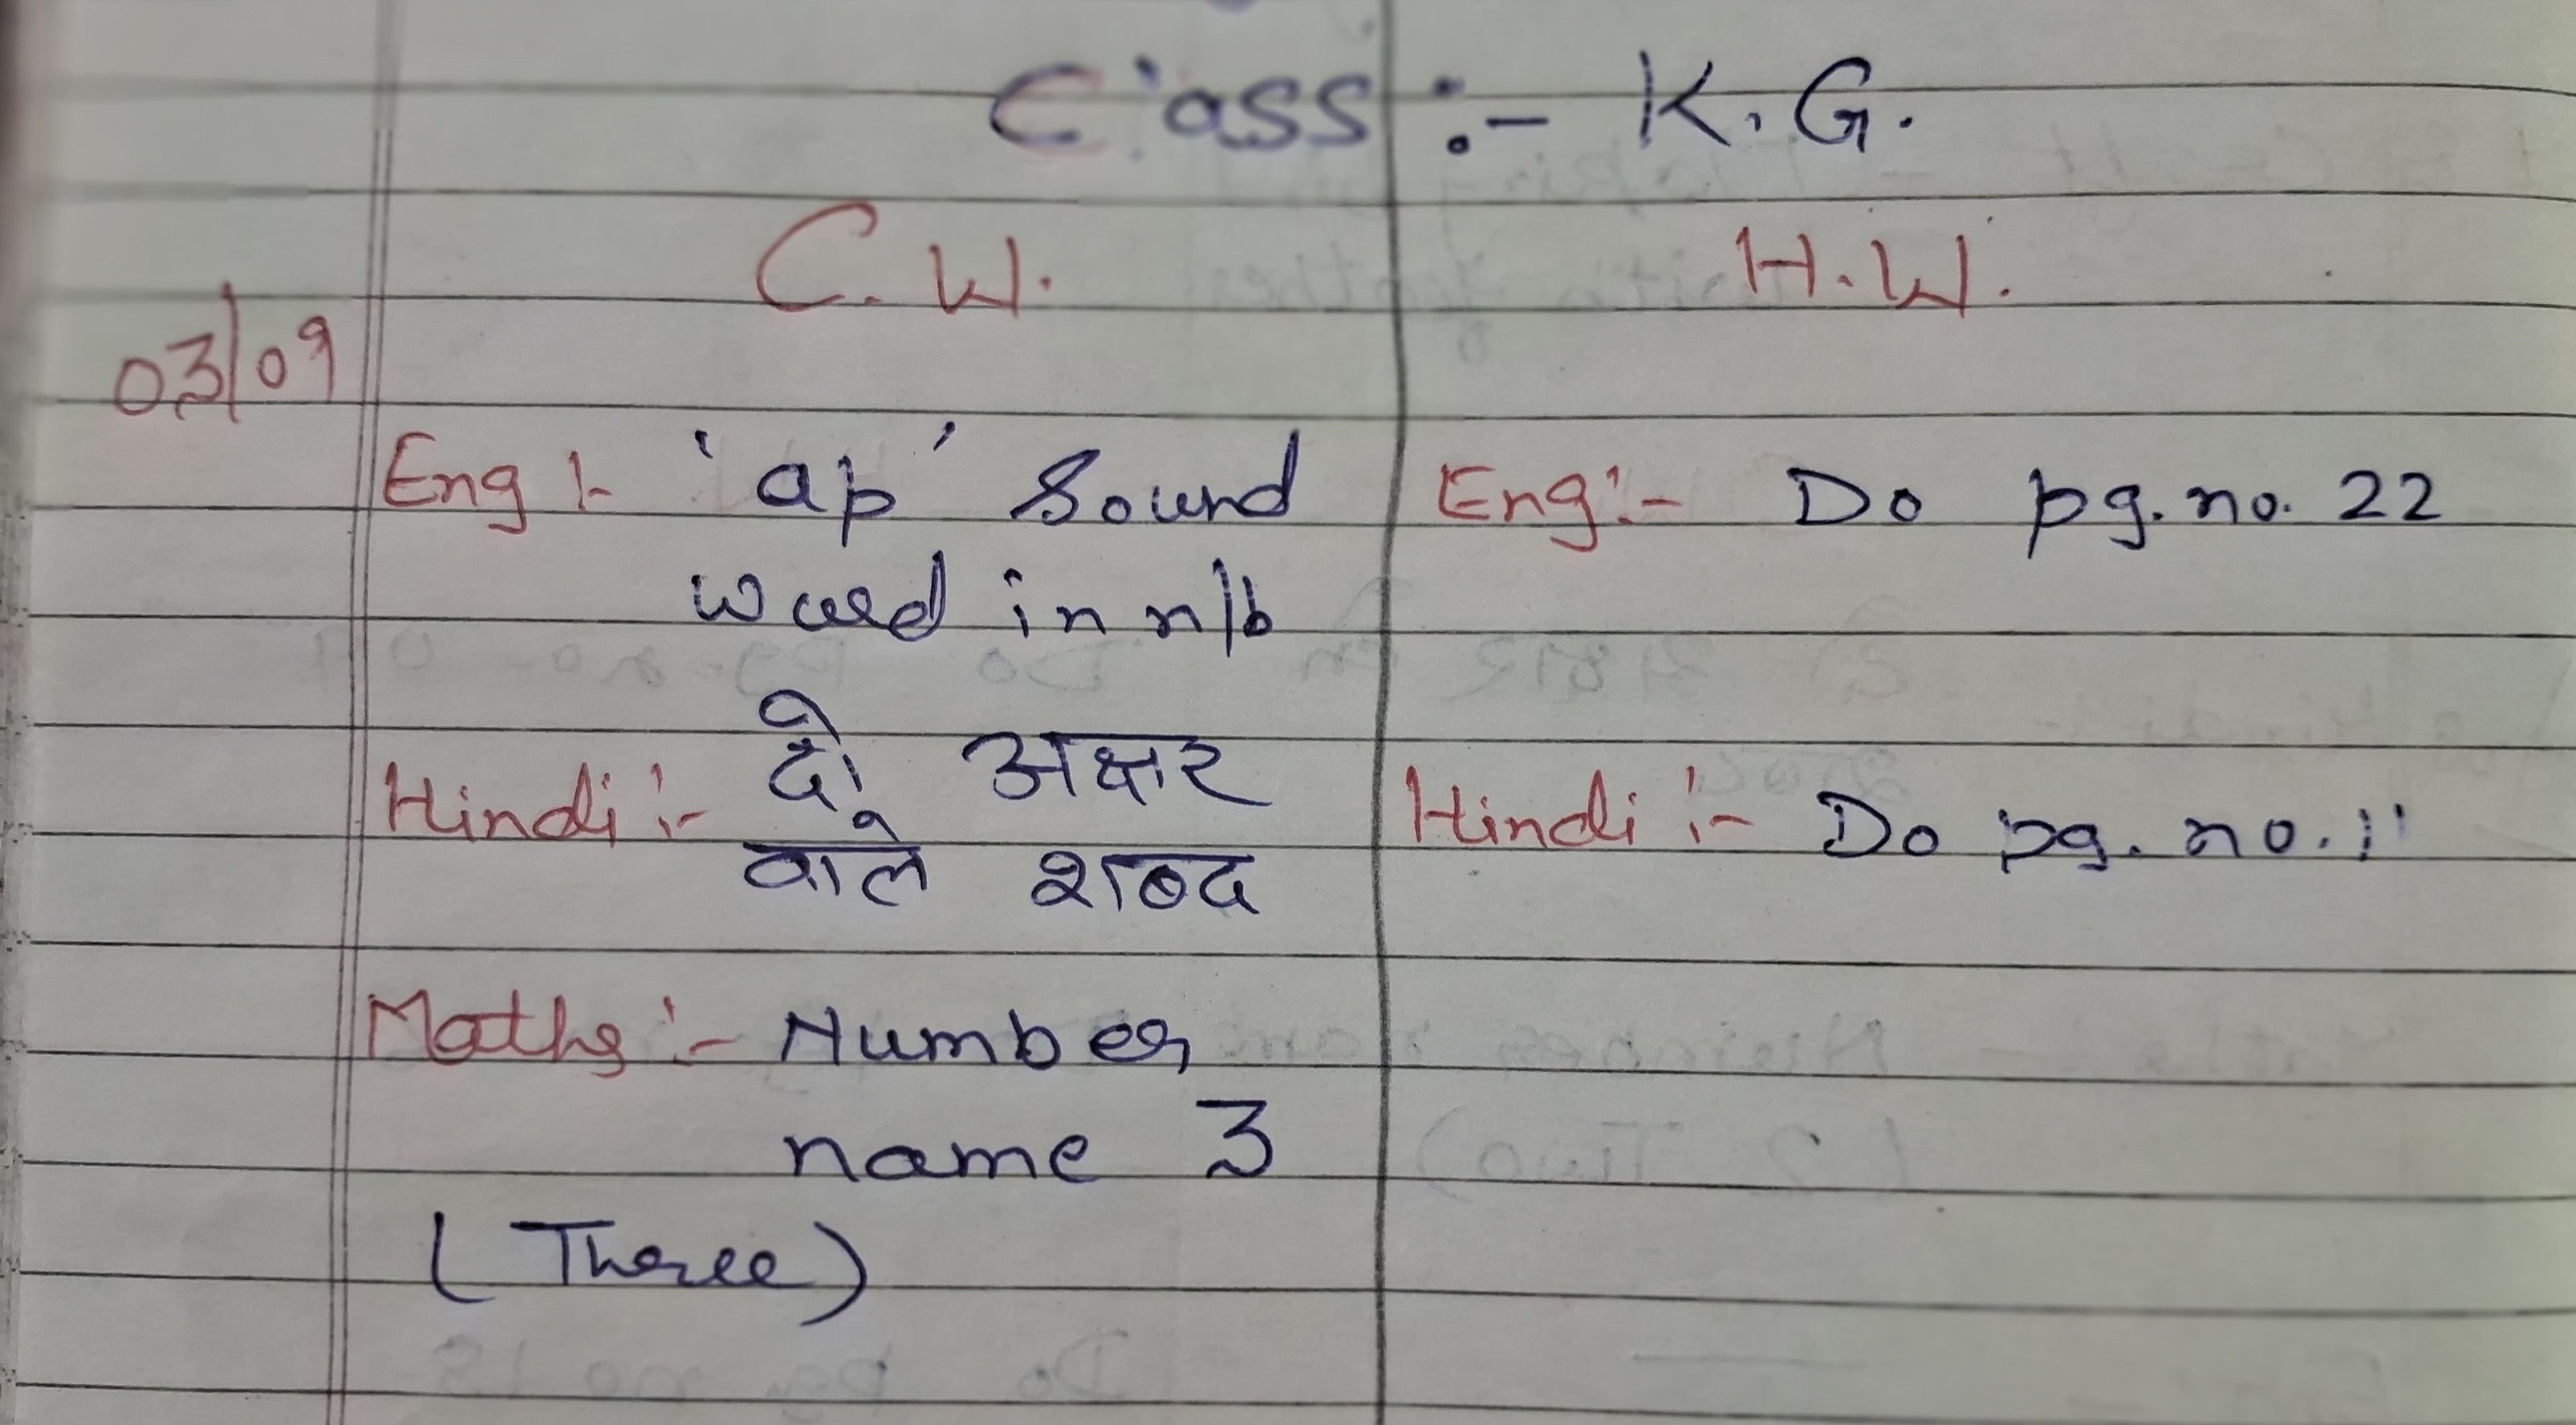 Class :- K.G.
C.W. H.W.
03/09
Eng :- 'ap' Sound Eng :- Do pg. no. 22
word in n/b
Hindi :- दो अक्षर Hindi :- Do pg. no. 11
वाले शब्द
Maths :- Number
name 3
(Three)